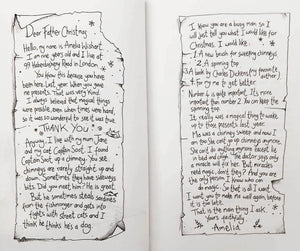 Dear Father Christmas
Hello, my name is Amelia Wishart.
I am years old and I live at
Road in London.
You know this because you have
been here. Last year when you gave
me presents. That was very kind.
I always believed that magical things
were possible, even when times were hard
so it was so wonderful to see it was true.
THANK YOU
Anyway, I live with my Jane
and my cat Captain Soot. I found
Captain Soot up a chimney. You see
chimneys are rarely straight up and
down. Sometimes they have sideways
bits. Did you meet him? He is great.
But he sometimes steals sardines
from the fishmonger and gets into
fights with street cats and I
think he thinks he's a dog.
I know you are a busy man so I
will just tell you what I would like for
Christmas. I would like:
1. A new brush for sweeping chimneys
2. A spinning top
3. A book by Charles Dickens (my favourite
author!)
4. For my to get better.
Number 4 is quite important. It's more
important than number 2. You can keep the
spinning top.
It really was a magical thing to wake
up to those presents last year.
Ma is a chimney sweep and now I am
too. She can't go up chimneys anymore.
She can't do anything anymore except lie
in bed and cough. The doctor says only
a miracle will fix her. But miracles
need magic, don't they? And you are
the only person I know who can
do magic. So that is all I want.
I want you to make well again before
it is too late.
That is the main thing I ask.
Yours faithfully
Amelia